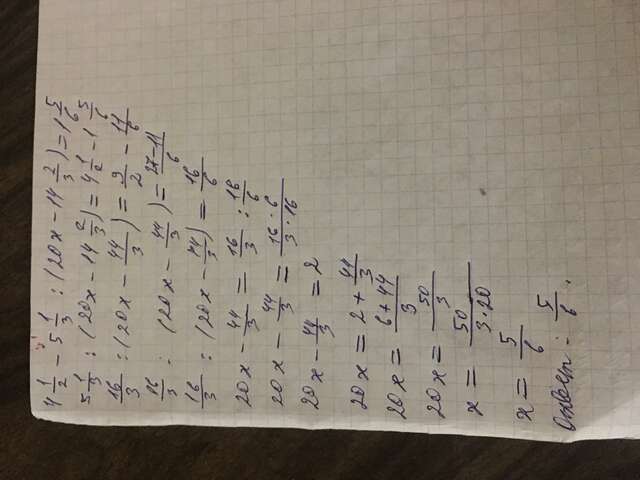 4 1/2 - 5 1/3 : (20x - 14 2/3) = 1 5/6
5 1/3 : (20x - 14 2/3) = 4 1/2 - 1 5/6
16/3 : (20x - 44/3) = 9/2 - 11/6
16/3 : (20x - 44/3) = 27-11/6
16/3 : (20x - 44/3) = 16/6
20x - 44/3 = 16/3 : 16/6
20x - 44/3 = 16·6/3·16
20x - 44/3 = 2
20x = 2 + 44/3
20x = 6+44/3
20x = 50/3
x = 50/3·20
x = 5/6
Ответ: 5/6.